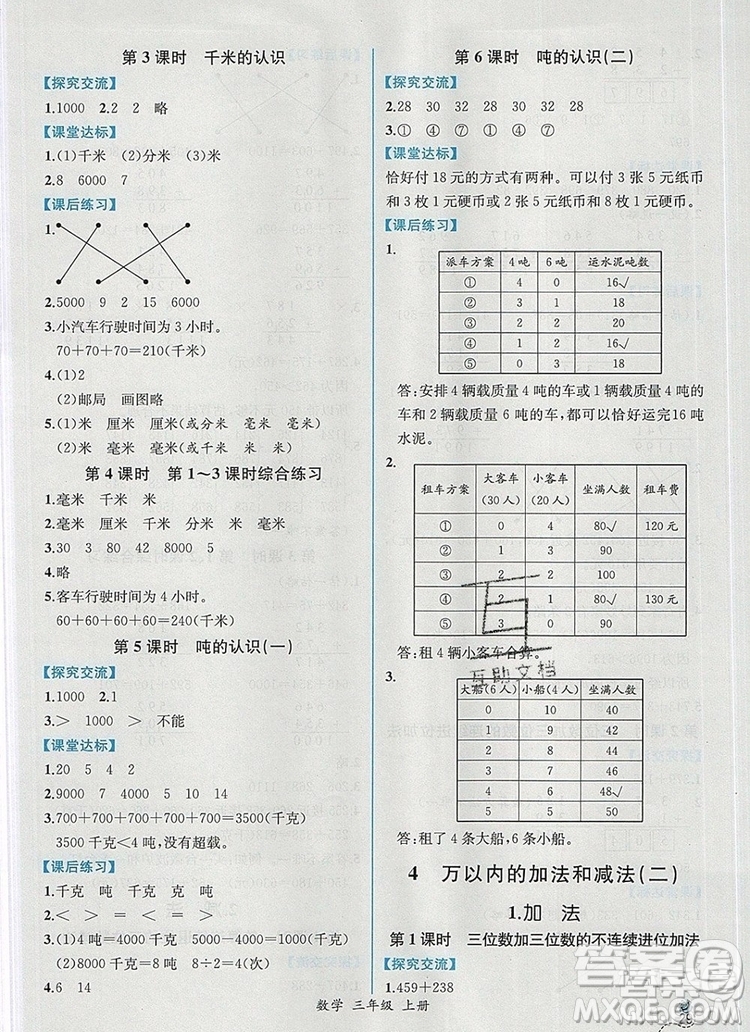 第3课时 千米的认识
【探究交流】
1.1000 2.2 2 略
【课堂达标】
1.(1)千米 (2)分米 (3)米
2.8 6000 7
【课后练习】
1.
2.5000 9 2 15 6000
3.小汽车行驶时间为3小时。
70+70+70=210(千米)
4.(1)2
(2)邮局 画图略
5.(1)米 厘米 厘米(或分米) 毫米 厘米
(2)米 毫米 米 千米(或米) 毫米
第4课时 第1~3课时综合练习
1.毫米 千米 米
2.毫米 厘米 千米 分米 米 毫米
3.30 3 80 42 8000 5
4.略
5.客车行驶时间为4小时。
60+60+60+60=240(千米)
第5课时 吨的认识(一)
【探究交流】
1.1000 2.1
3.> 1000 > 不能
【课堂达标】
1.20 5 4 2
2.9000 7 4000 5 10 14
3.< > = < > =
4.700+700+700+700+700=3500(千克)
3500千克<4吨,没有超载。
【课后练习】
1.千克 吨 千克 克 吨
2.< > = = < =
3.(1)4吨=4000千克 4000<5000
(2)8000千克=8吨 8÷2=4(次)
4.6 14
第6课时 吨的认识(二)
【探究交流】
2.28 30 32 28 30 32 28
3.① ④ ① ④ ⑦
【课堂达标】
恰好付18元的方式有两种。可以付3张5元纸币和3枚1元硬币或2张5元纸币和8枚1元硬币。
【课后练习】
1.
派车方案 4吨 6吨 运水泥吨数
① 4 0 16√
② 3 1 18
③ 2 2 20
④ 1 2 16√
⑤ 0 3 18
答:安排4辆载质量4吨的车或1辆载质量4吨的车和2辆载质量6吨的车,都可以恰好运完16吨水泥。
2.
租车方案 大客车(30人) 小客车(20人) 坐满人数 租车费
① 0 4 80√ 120元
② 1 3 90
③ 2 2 100
④ 2 1 80√ 130元
⑤ 3 0 90
答:租4辆小客车合算。
互助文档
3.
大船(6人) 小船(4人) 坐满人数
0 10 40
1 9 42
2 8 44
3 7 46
4 6 48√
5 5 50
答:租了4条大船,6条小船。
4 万以内的加法和减法(二)
1.加 法
第1课时 三位数加三位数的不连续进位加法
【探究交流】
1.459+238
数学 三年级 上册
答案圈
MXQE.COM